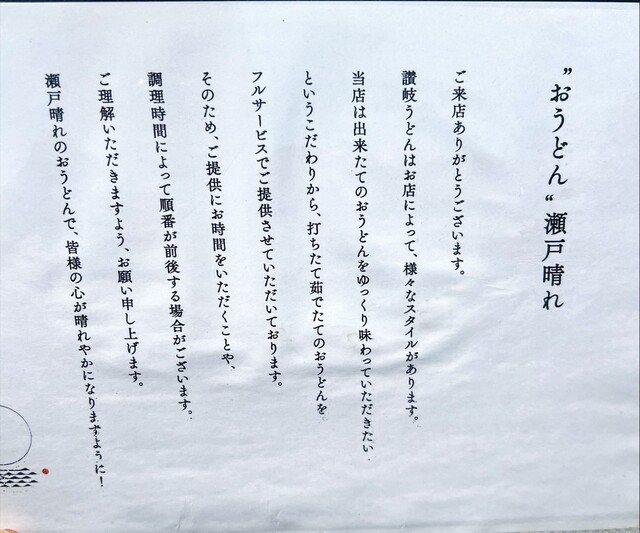 〝おうどん〟瀬戸晴れ
ご来店ありがとうございます。
讃岐うどんはお店によって、様々なスタイルがあります。
当店は出来たてのおうどんをゆっくり味わっていただきたい
というこだわりから、打ちたて茹でたてのおうどんを
フルサービスでご提供させていただいております。
そのため、ご提供にお時間をいただくことや、
調理時間によって順番が前後する場合がございます。
ご理解いただきますよう、お願い申し上げます。
瀬戸晴れのおうどんで、皆様の心が晴れやかになりますように！